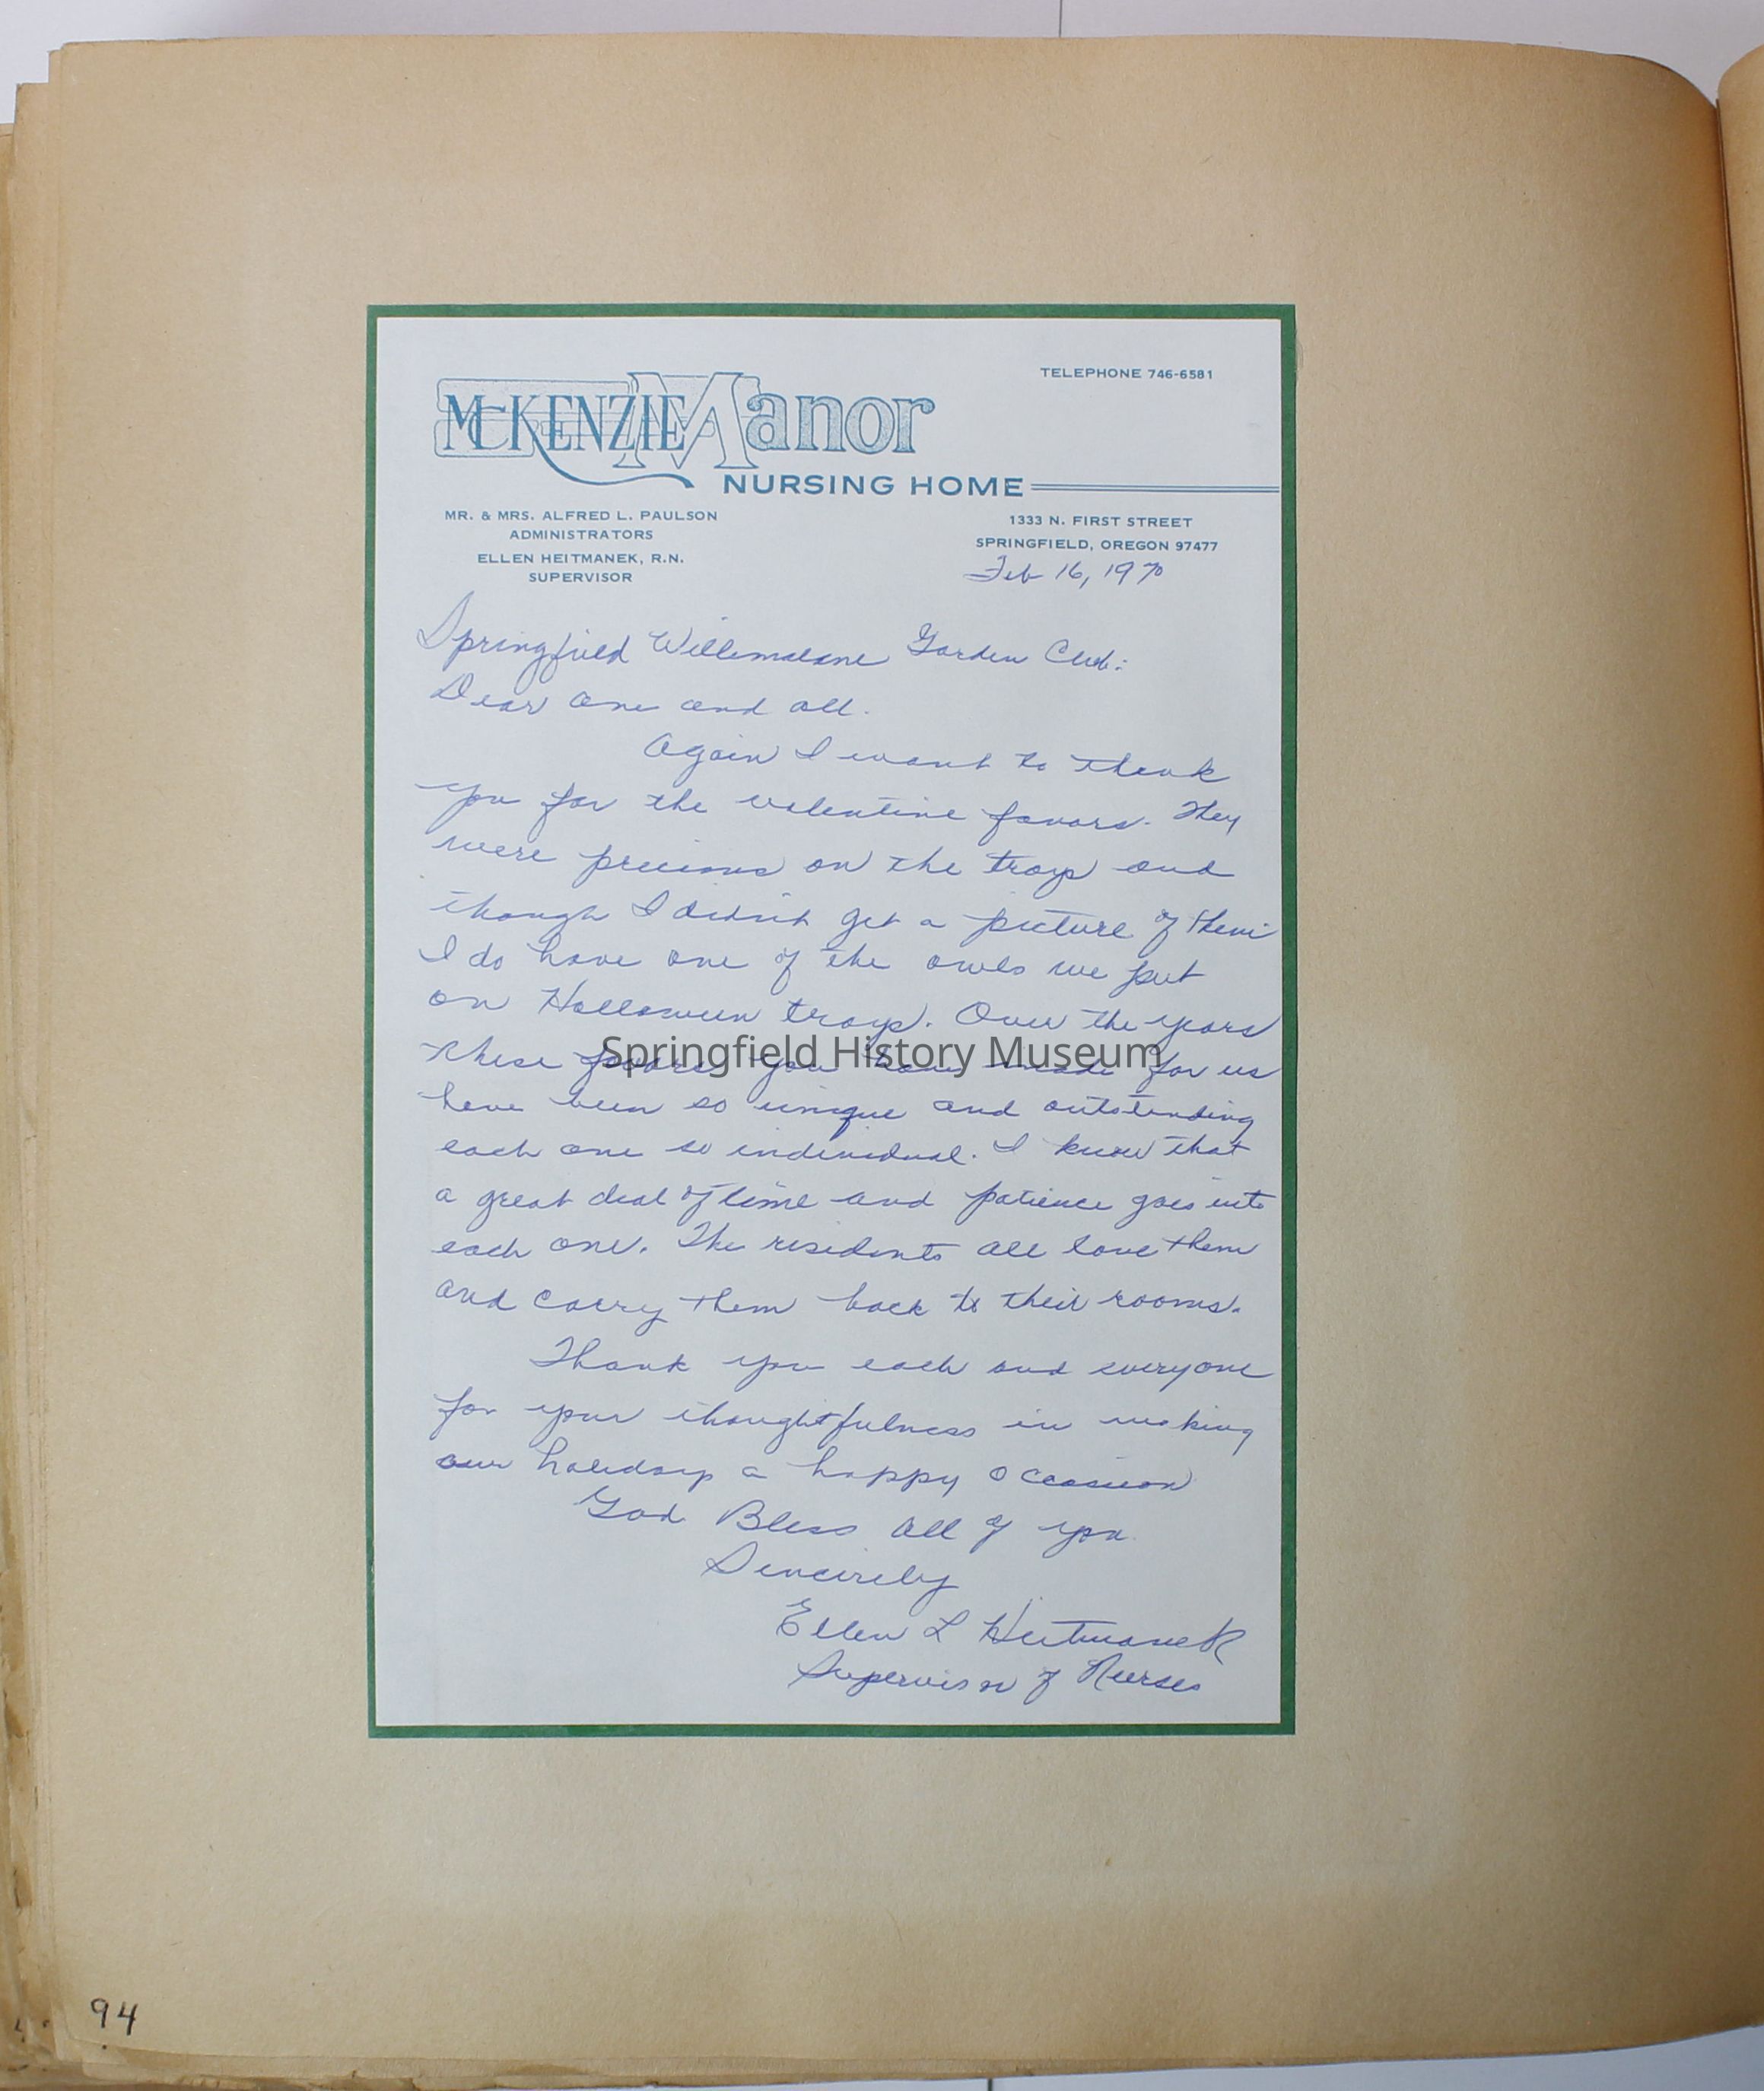 McKENZIE Manor
TELEPHONE 746-6581
NURSING HOME
MR. & MRS. ALFRED L. PAULSON
ADMINISTRATORS
ELLEN HEITMANEK, R.N.
SUPERVISOR
1333 N. FIRST STREET
SPRINGFIELD, OREGON 97477
Feb 16, 1970
Springfield Willamalane Garden Club:
Dear one and all.
Again I want to thank
you for the valentine favors. They
were precious on the trays and
though I didn't get a picture of them
I do have one of the owls we put
on Halloween trays. Over the years
these favors you have made for us
have been so unique and outstanding
each one so individual. I know that
a great deal of time and patience goes into
each one. The residents all love them
and carry them back to their rooms.
Thank you each and everyone
for your thoughtfulness in making
our holidays a happy occasion
God Bless all of you
Sincerely
Ellen L Heitmanek
Supervisor of Nurses
Springfield History Museum
94